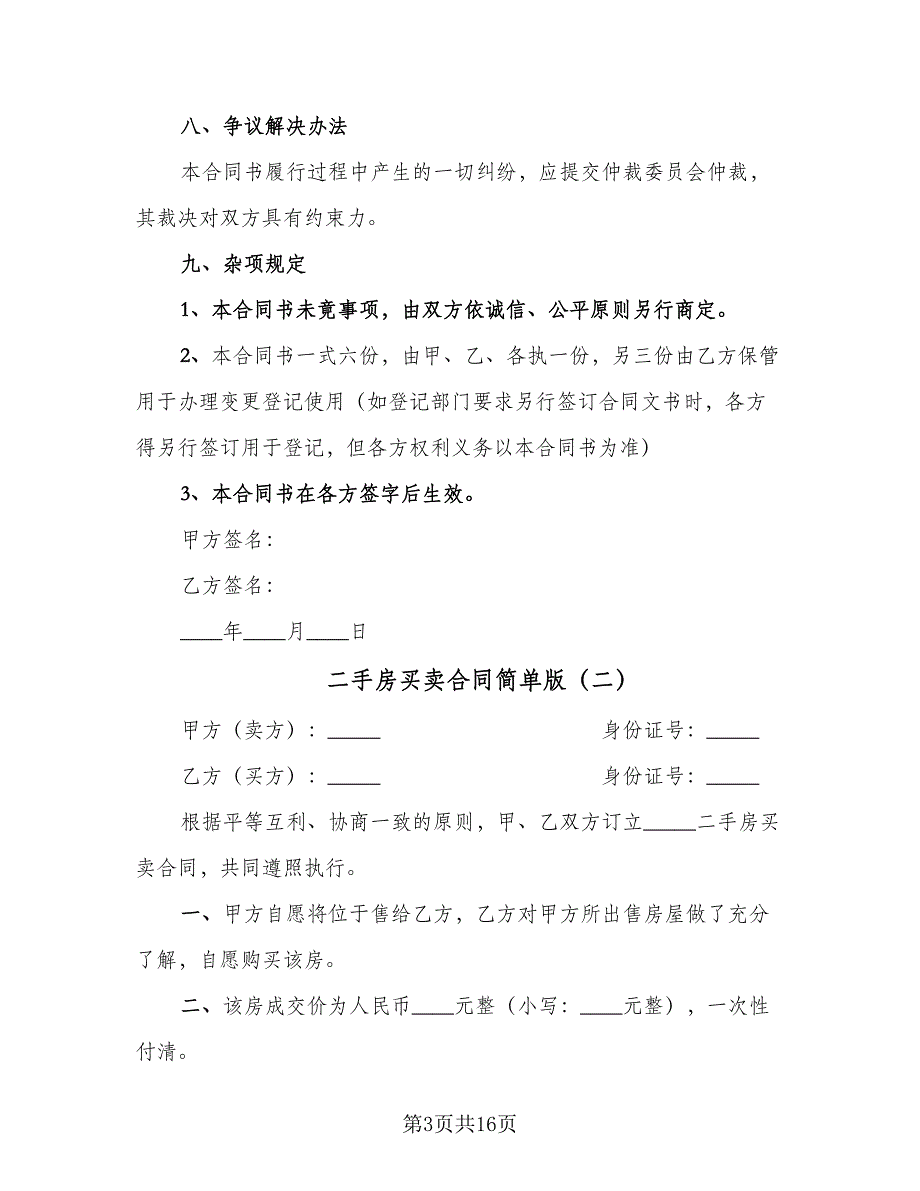 八、争议解决办法
本合同书履行过程中产生的一切纠纷，应提交仲裁委员会仲裁，
其裁决对双方具有约束力。
九、杂项规定
1、本合同书未竟事项，由双方依诚信、公平原则另行商定。
2、本合同书一式六份，由甲、乙、各执一份，另三份由乙方保管
用于办理变更登记使用（如登记部门要求另行签订合同文书时，各方
得另行签订用于登记，但各方权利义务以本合同书为准）
3、本合同书在各方签字后生效。
甲方签名：
乙方签名：
____年____月____日
二手房买卖合同简单版（二）
甲方（卖方）：_____ 身份证号：_____
乙方（买方）：_____ 身份证号：_____
根据平等互利、协商一致的原则，甲、乙双方订立_____二手房买
卖合同，共同遵照执行。
一、甲方自愿将位于售给乙方，乙方对甲方所出售房屋做了充分
了解，自愿购买该房。
二、该房成交价为人民币____元整（小写：____元整），一次性
付清。
第3页共16页